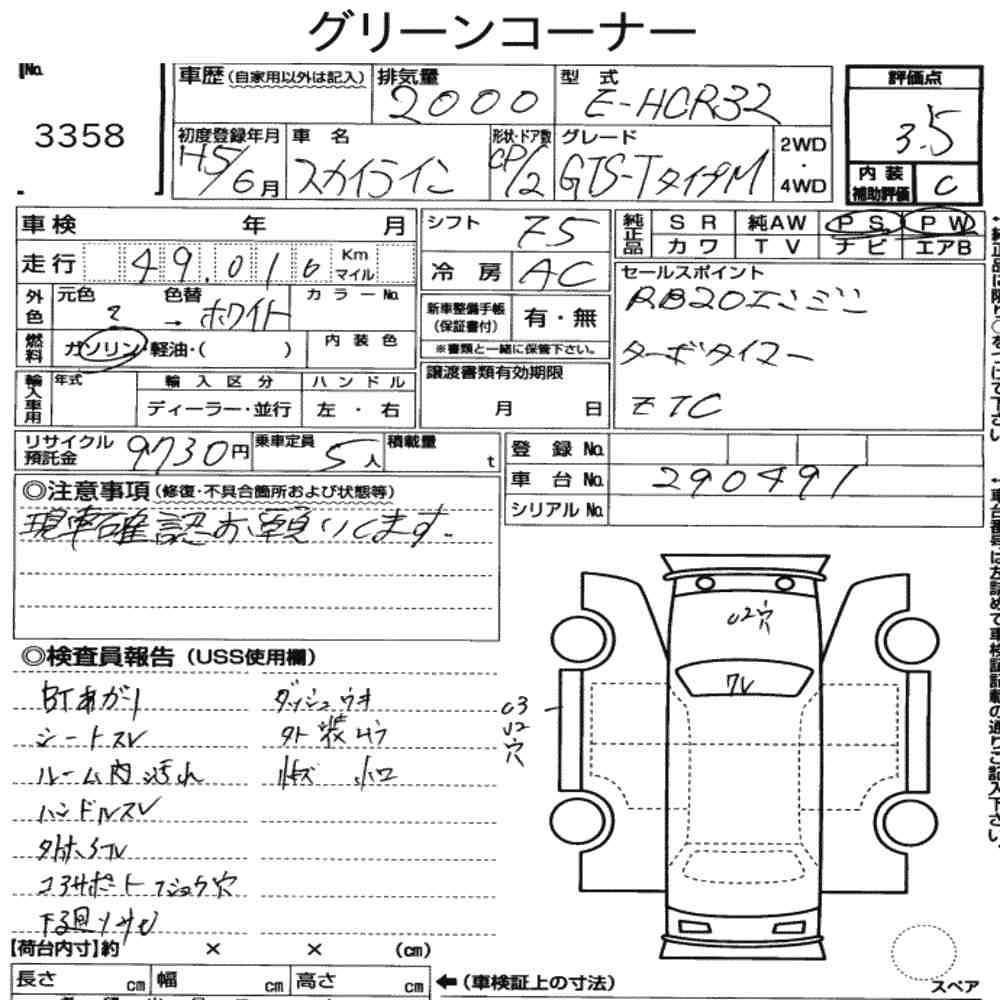 グリーンコーナー
No. 3358
車歴(自家用以外は記入) 排気量 2000 型式 E-HCR32
初度登録年月 H5/6月 車名 スカイライン 形状・ドア数 CP/2 グレード GTS-TタイプM 2WD・4WD
評価点 3.5
内装補助評価 C
車検 年 月
走行 49.016 Km マイル
外色 元色 色替 → ホワイト カラーNo.
燃料 ガソリン・軽油・( ) 内装色
輸入車用 年式 輸入区分 ディーラー・並行 ハンドル 左・右
シフト F5
冷房 AC
新車整備手帳(保証書付) 有・無
※書類と一緒に保管下さい。
譲渡書類有効期限 月 日
純正品 SR 純AW PS PW
カワ TV ナビ エアB
セールスポイント
RB20エンジン
ターボタイマー
ETC
リサイクル預託金 9730円 乗車定員 5人 積載量 t
登録No.
車台No. 290491
シリアルNo.
◎注意事項(修復・不具合箇所および状態等)
現車確認お願いします.
◎検査員報告(USS使用欄)
BTあがり
シートスレ
ルーム内汚れ
ハンドルスレ
コアサポート 穴
下回りサビ
ダッシュウキ
外装
U2穴
ワレ
U3
U2
穴
【荷台内寸】約 × × (cm)
長さ cm 幅 cm 高さ cm
←(車検証上の寸法)
スペア